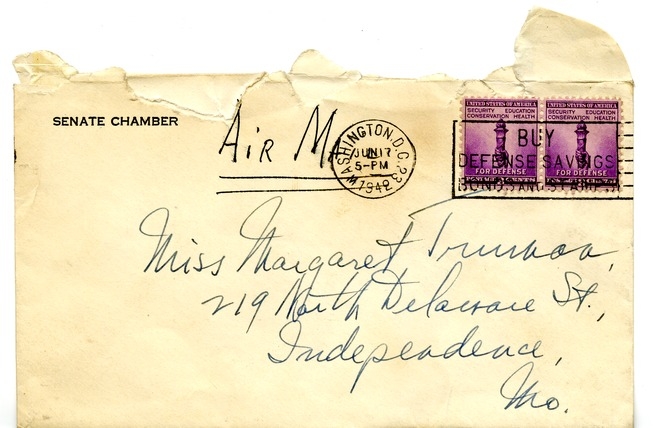 SENATE CHAMBER
Air M
WASHINGTON, D.C. 23
JUN 17
5-PM
1942
UNITED STATES OF AMERICA
SECURITY EDUCATION
CONSERVATION HEALTH
FOR DEFENSE
UNITED STATES OF AMERICA
SECURITY EDUCATION
CONSERVATION HEALTH
FOR DEFENSE
BUY
DEFENSE SAVINGS
BONDS AND STAMPS
Miss Margaret Truman,
219 North Delaware St.,
Independence,
Mo.